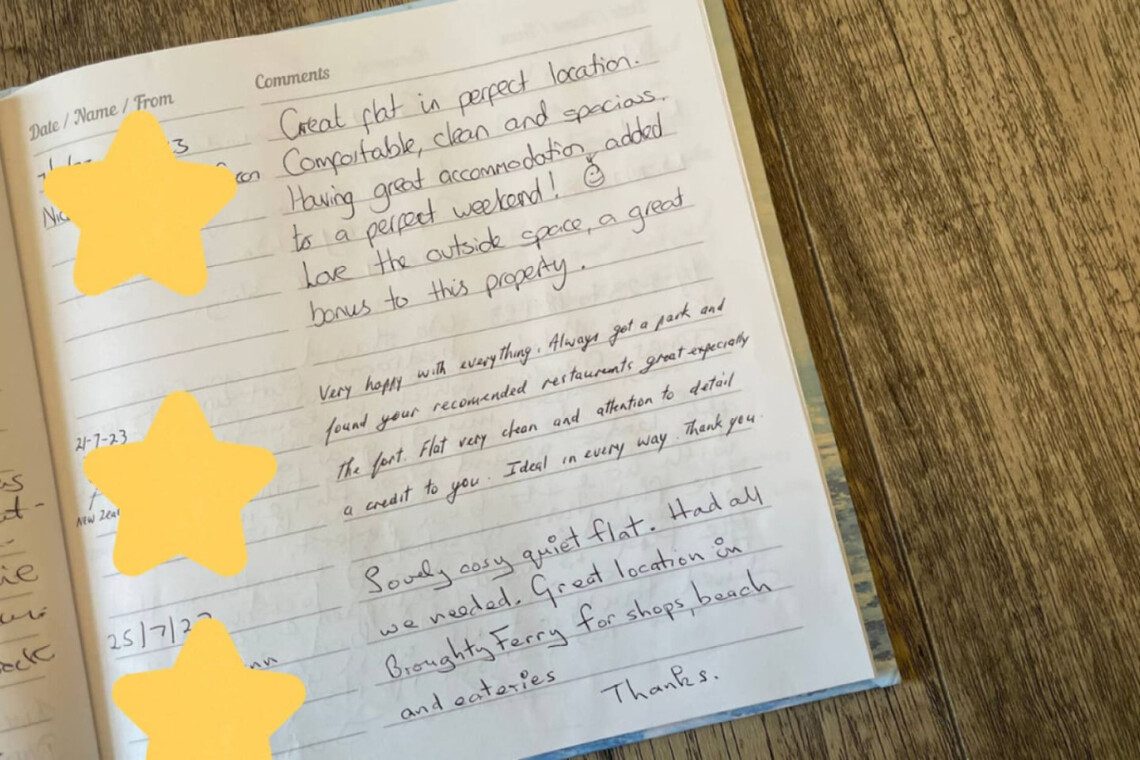 Date / Name / From
Comments
Great flat in perfect location.
Comfortable, clean and spacious.
Having great accommodation added
to a perfect weekend!
Love the outside space, a great
bonus to this property.
21-7-23
Very happy with everything. Always got a park and
found your recomended restaurants great especially
The fort. Flat very clean and attention to detail
a credit to you. Ideal in every way. Thank you.
25/7/2
Lovely cosy quiet flat. Had all
we needed. Great location in
Broughty Ferry for shops, beach
and eateries
Thanks.